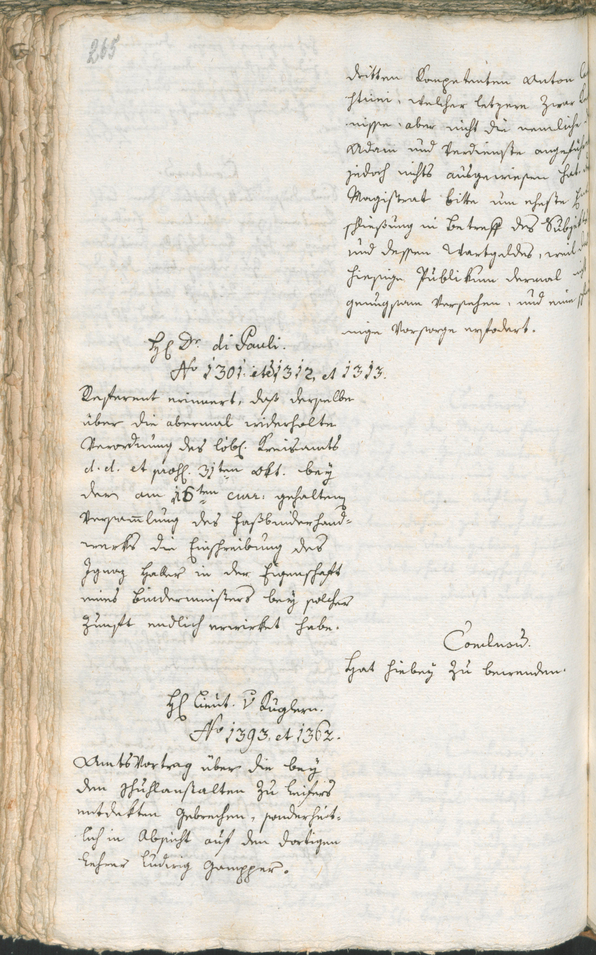 265
dritten Kompetenten Anton
welcher letzere zwar
nisse aber nicht die nemliche
Adam und Verdienste angeführt
jedoch nichts ausgewiesen hat.
Magistrat bitte um eheste
schließung in Betreff des Subjekts
und dessen Wartgeldes, weil
hiesige Publikum dermal nicht
genugsam versehen, und eine
nige Vorsorge erfodert.
H. Dr. di Pauli.
No 1301. et 1312, et 1313.
Referent erinnert, daß derselbe
über die abermal widerholte
Verordnung des löbl. Kreisamts
d. d. et præs. 31ten Okt. bey
dem am 16ten curr: gehaltenen
Versammlung des Faßbinderhand-
werks die Einschreibung des
Ignaz Haller in der Eigenschaft
eines Bindermeisters bey solcher
Zunft endlich erwirket habe.
Conclusum.
Hat hiebey zu bewenden.
H. Lieut. v Kuglern.
No 1393. et 1362.
Amtsvortrag über die bey
den Schuhlanstalten zu Leifers
entdekten Gebrechen, sonderheit-
lich in Absicht auf den dortigen
Lehrer Ludwig Gampper.